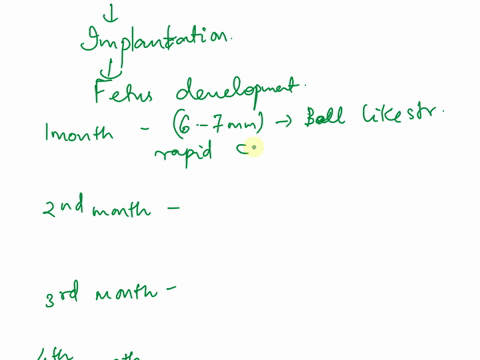 Implantation.
Fetus development.
1 month - (6-7mm) → Ball like str.
rapid c
2nd month -
3rd month -
4th month